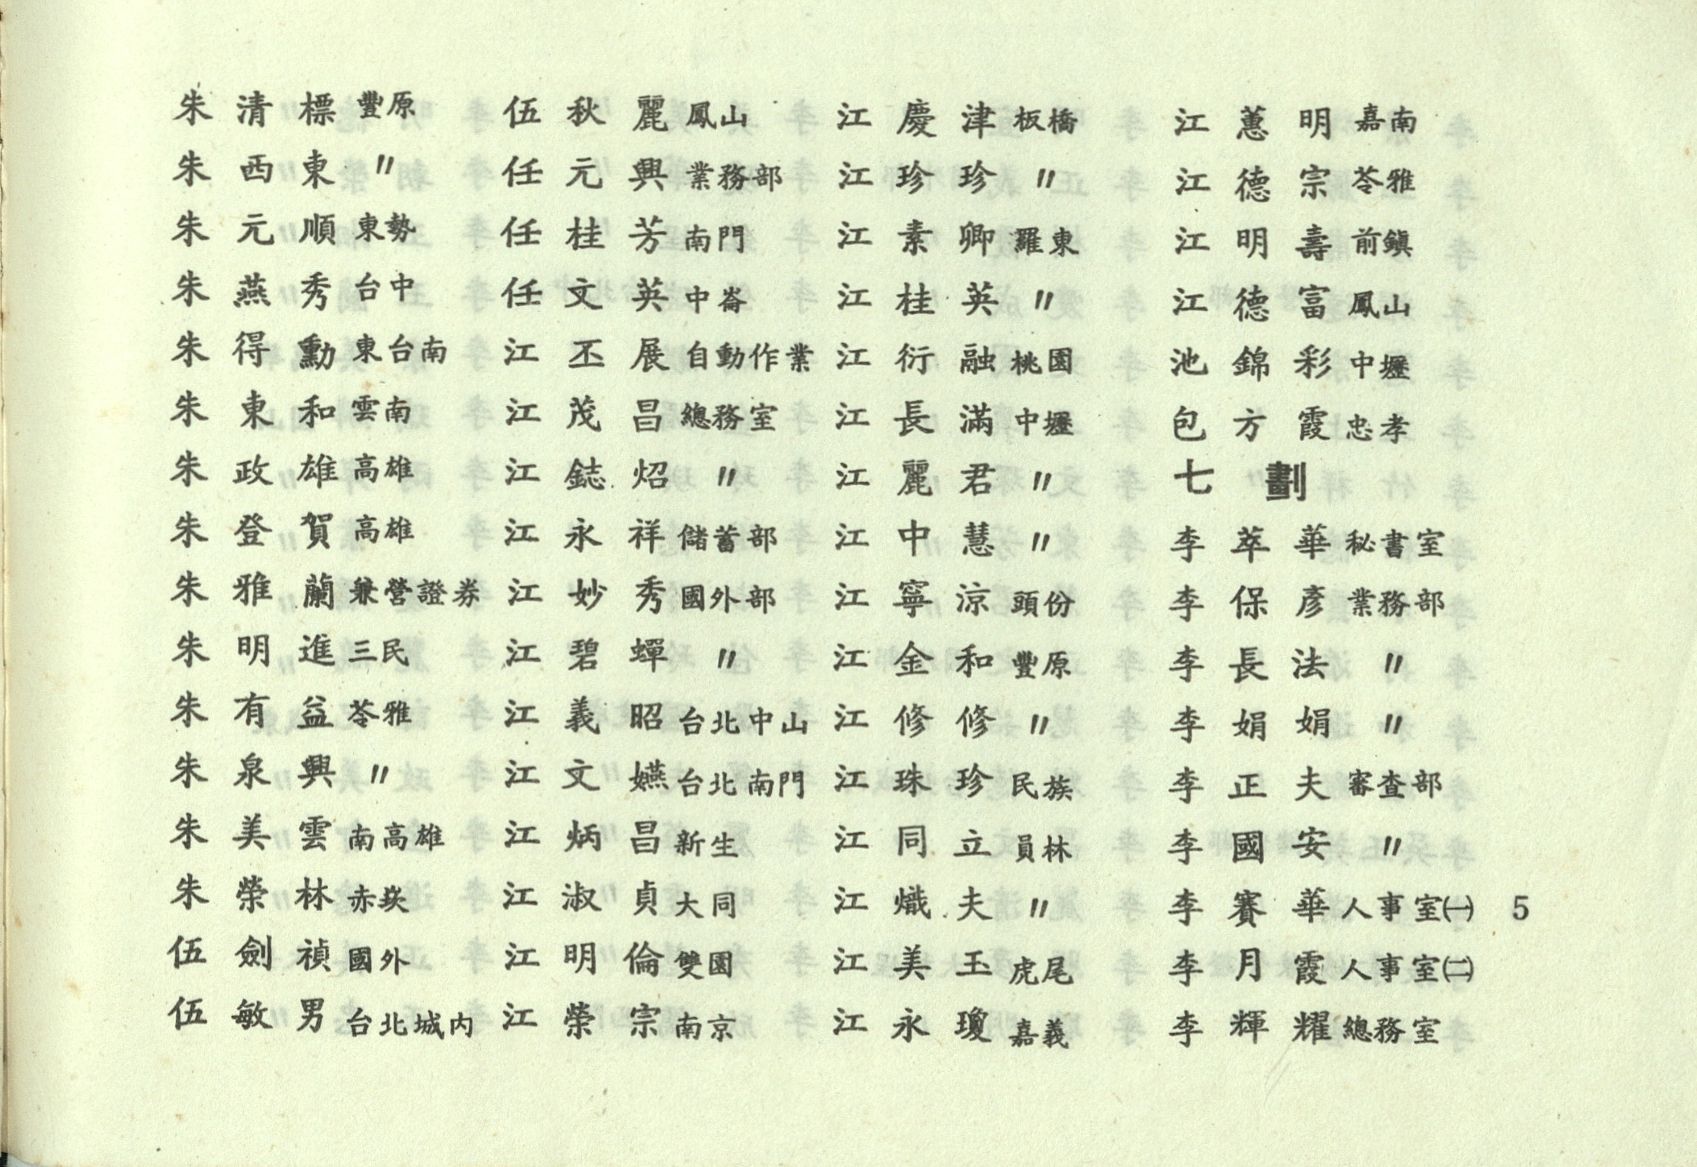 朱清標 豐原
朱西東 〃
朱元順 東勢
朱燕秀 台中
朱得勳 東台南
朱東和 雲南
朱政雄 高雄
朱登賀 高雄
朱雅蘭 兼營證券
朱明進 三民
朱有益 苓雅
朱泉興 〃
朱美雲 南高雄
朱榮林 赤崁
伍劍禎 國外
伍敏男 台北城内
伍秋麗 鳳山
任元興 業務部
任桂芳 南門
任文英 中崙
江丕展 自動作業
江茂昌 總務室
江鋕炤 〃
江永祥 儲蓄部
江妙秀 國外部
江碧蟬 〃
江義昭 台北中山
江文嬿 台北南門
江炳昌 新生
江淑貞 大同
江明倫 雙園
江榮宗 南京
江慶津 板橋
江珍珍 〃
江素卿 羅東
江桂英 〃
江衍融 桃園
江長滿 中壢
江麗君 〃
江中慧 〃
江寧涼 頭份
江金和 豐原
江修修 〃
江珠珍 民族
江同立 員林
江熾夫 〃
江美玉 虎尾
江永瓊 嘉義
江蕙明 嘉南
江德宗 苓雅
江明壽 前鎮
江德富 鳳山
池錦彩 中壢
包方霞 忠孝
七劃
李萃華 秘書室
李保彥 業務部
李長法 〃
李娟娟 〃
李正夫 審查部
李國安 〃
李賽華 人事室㈠
李月霞 人事室㈡
李輝耀 總務室
5